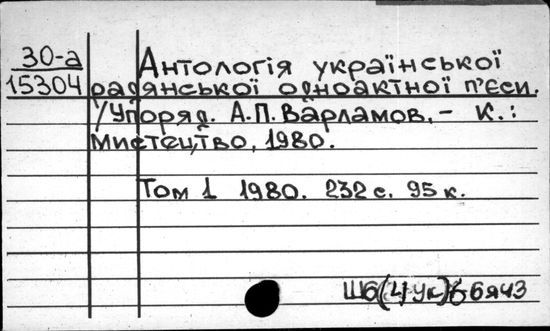 30-а
15304
Антологія української
радянської одноактної п'єси.
/Упоряд. А.П. Варламов. – К.:
Мистецтво, 1980.
Том 1 1980. 232 с. 95 к.
Ш6(4Ук)6-6я43